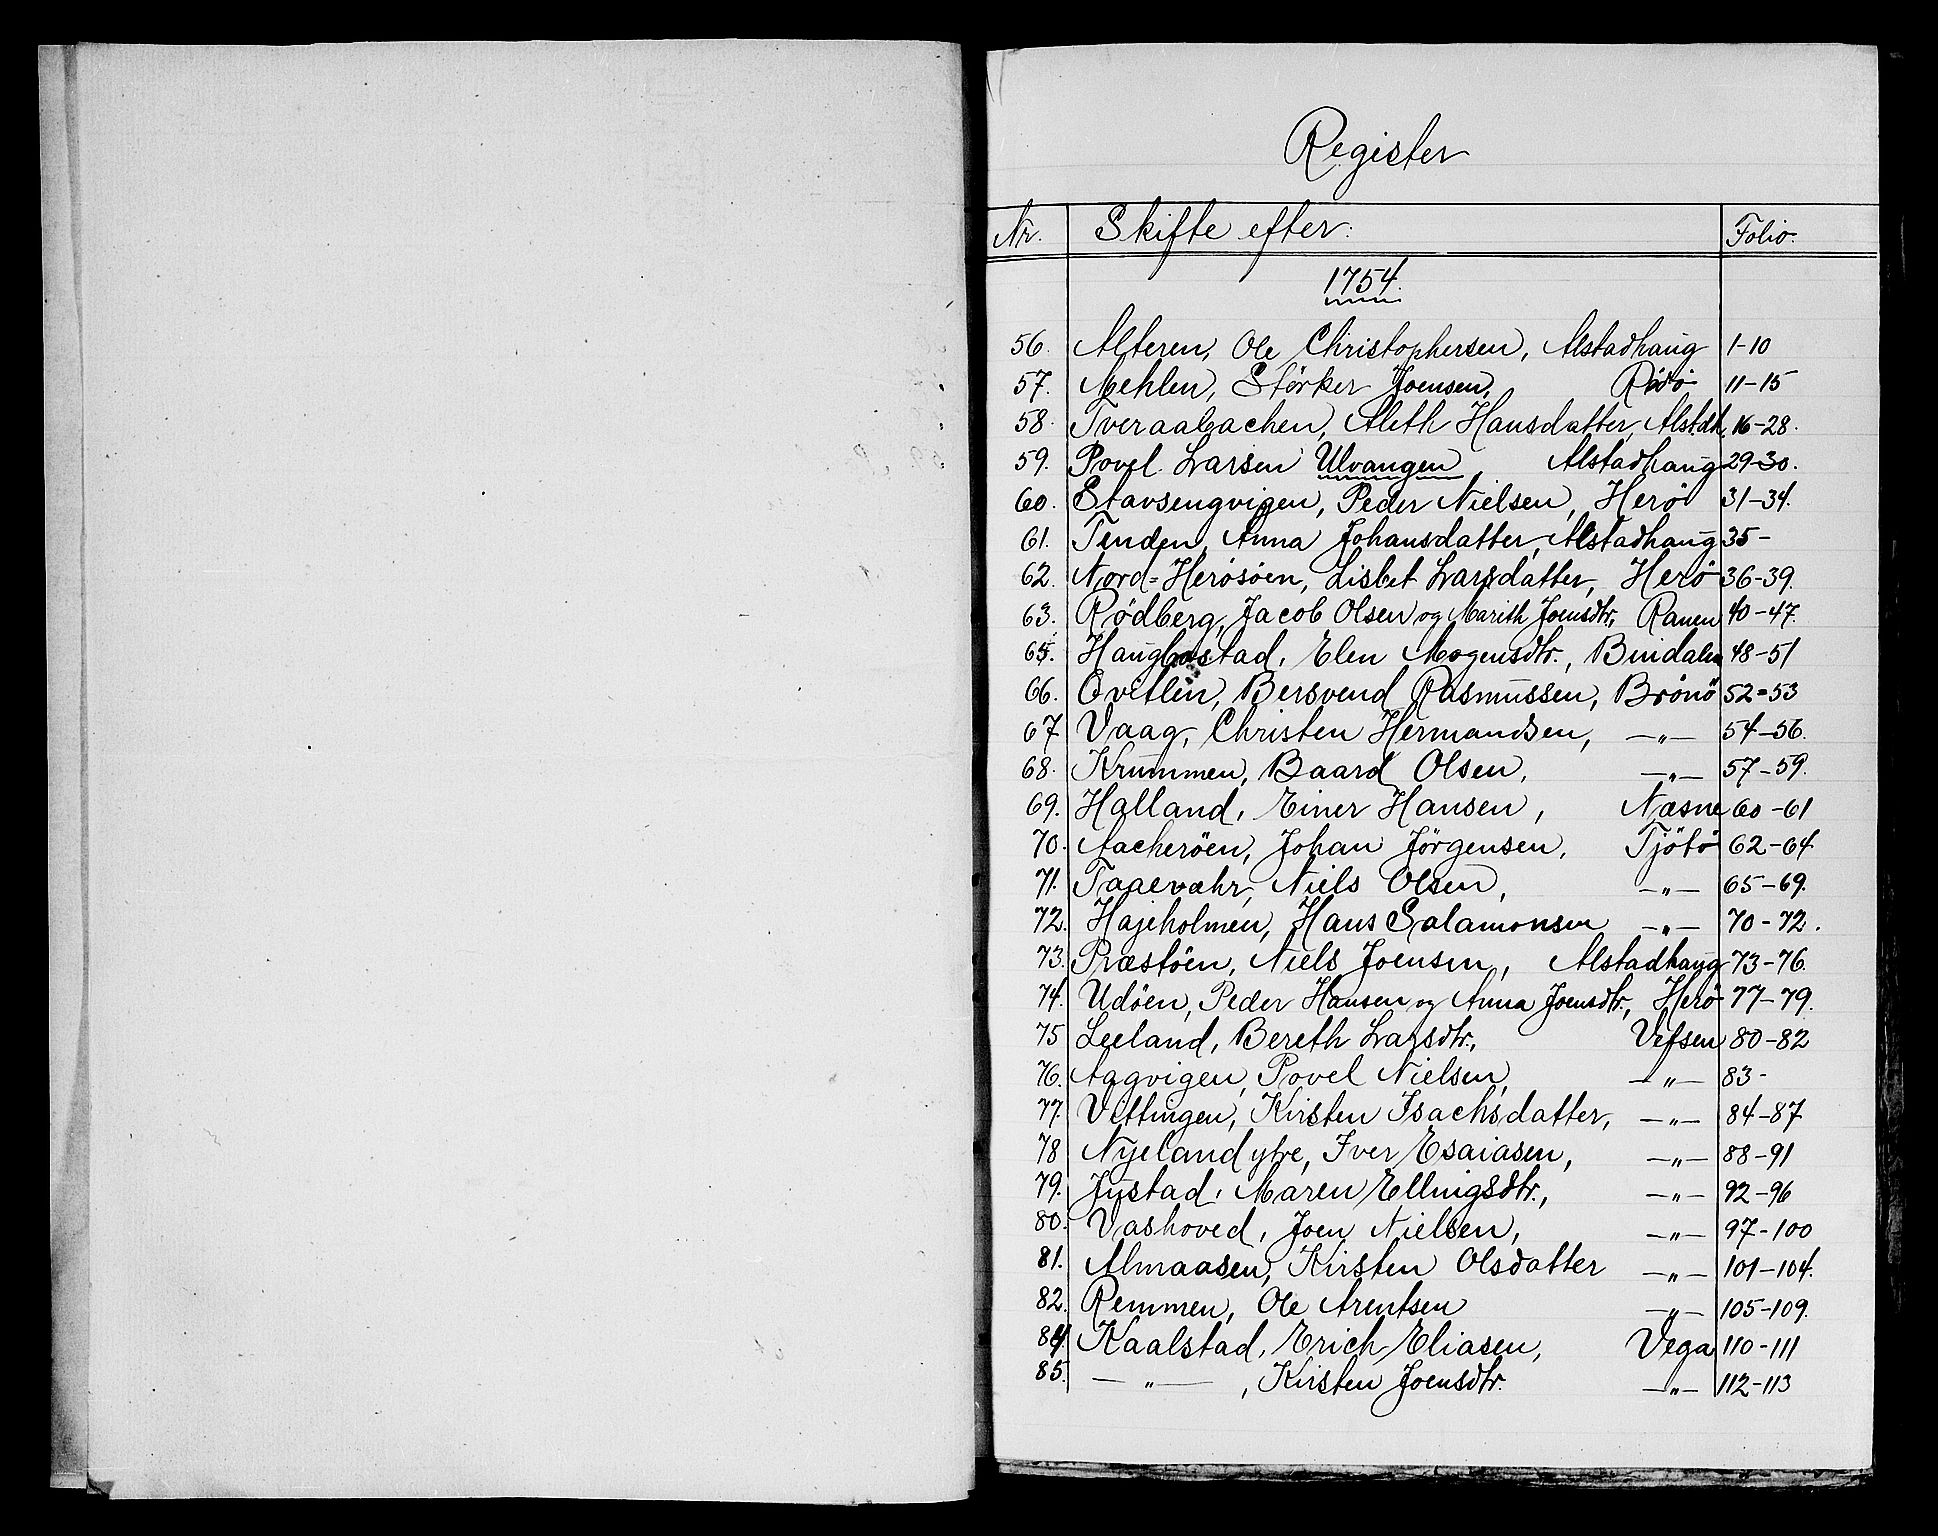 Register
Nr. Skifte efter: Folio.
1754.
56. Alteren, Ole Christophersen, Alstadhaug 1-10
57. Mehlen, Størker Joensen, Rödö 11-15
58. Tveraabachen, Aleth Hansdatter, Alstdh. 16-28.
59. Povel Larsen Ulvangen, Alstadhaug 29-30.
60. Stavsengvigen, Peder Nielsen, Herö 31-34.
61. Tenden, Anna Johansdatter, Alstadhaug 35-
62. Nord-Herösöen, Lisbet Larsdatter, Herö 36-39.
63. Rödberg, Jacob Olsen og Marith Joensdtr., Ranen 40-47.
65. Haugbostad, Elen Mogensdtr., Bindalen 48-51
66. Qvitlen, Bersvend Rasmussen, Brönö 52=53
67 Vaag, Christen Hermandsen, —„— 54-56.
68. Krummen, Baard Olsen, —„— 57-59.
69. Halland, Einer Hansen, Næsne 60-61
70. Aacheröen, Johan Jörgensen, Tjötö 62-64
71. Taaevæhr, Niels Olsen, —„— 65-69.
72. Hajeholmen, Hans Salamonsen —„— 70-72.
73. Præstöen, Niels Joensen, Alstadhaug 73-76.
74. Udöen, Peder Hansen og Anna Joensdtr., Herö 77-79.
75 Leeland, Bereth Larsdtr., Vefsen 80-82
76. Aagvigen, Povel Nielsen, —„— 83-
77. Vittingen, Kirsten Isachsdatter, —„— 84-87
78 Nyeland ytre, Iver Esaiasen, —„— 88-91
79. Jystad, Maren Ellingsdtr., —„— 92-96
80. Vashoved, Joen Nielsen, —„— 97-100
81. Almaasen, Kirsten Olsdatter —„— 101-104.
82. Remmen, Ole Arentsen —„— 105-109.
84. Kaalstad, Erich Eliasen, Vega 110-111
85. —„—, Kirsten Joensdtr. —„— 112-113